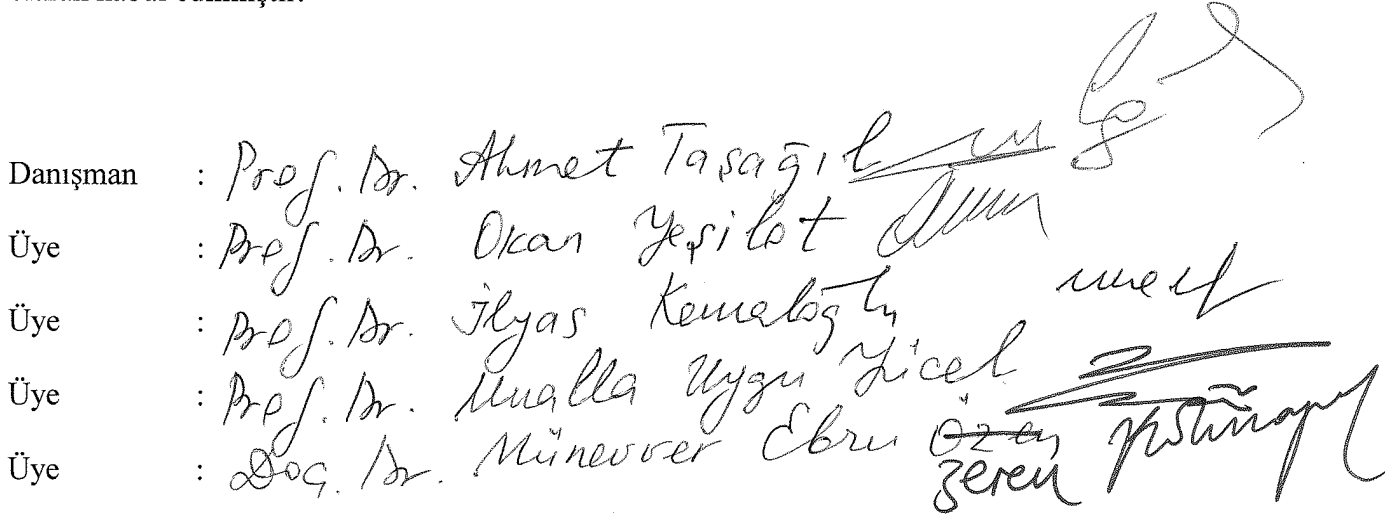 Danışman : Prof. Dr. Ahmet Taşağıl
Üye : Prof. Dr. Okan Yeşilot
Üye : Prof. Dr. İlyas Kemaloğlu
Üye : Prof. Dr. Mualla Uygu Yücel
Üye : Doç. Dr. Münevver Ebru Özen
Zeren